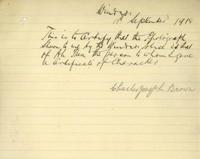 September 1918
This is to Certify that the Photograph
shown to me by the Windsor Police is that
of Ah the person to whom I gave
a Certificate of Character
Charles Joseph Brown